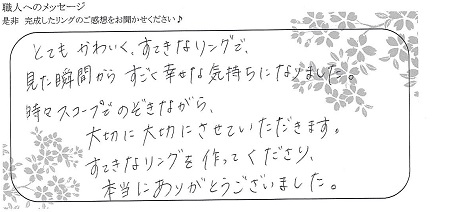 職人へのメッセージ
是非 完成したリングのご感想をお聞かせください♪
とてもかわいく、すてきなリングで、
見た瞬間から すごく幸せな気持ちになりました。
時々スコープでのぞきながら、
大切に大切にさせていただきます。
すてきなリングを作ってくださり、
本当にありがとうございました。